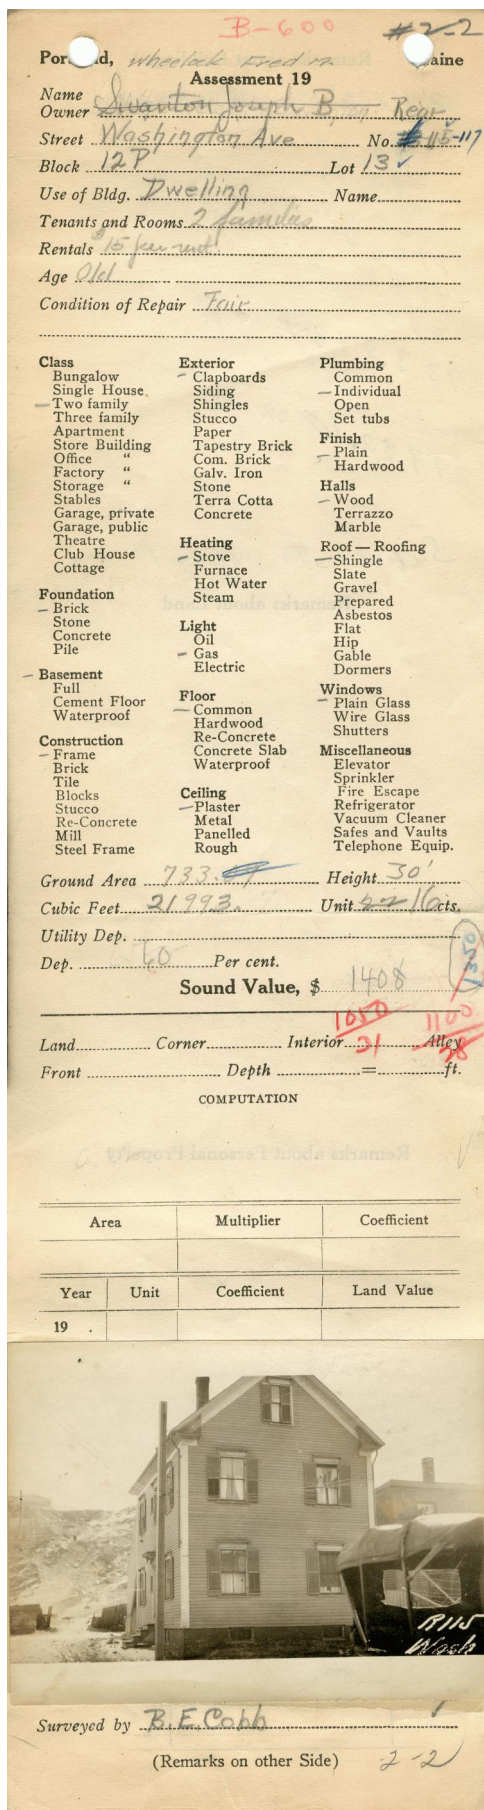 B-600 #2-2
Portland, Wheelock Fred M Maine
Assessment 19
Name
Owner Swanton Joseph B. Rear
Street Washington Ave No. 115-117
Block 12P Lot 13
Use of Bldg. Dwelling Name
Tenants and Rooms 2 families
Rentals $15 per
Age Old
Condition of Repair Fair
Class
Bungalow
Single House
Two family
Three family
Apartment
Store Building
Office "
Factory "
Storage "
Stables
Garage, private
Garage, public
Theatre
Club House
Cottage
Foundation
Brick
Stone
Concrete
Pile
Basement
Full
Cement Floor
Waterproof
Construction
Frame
Brick
Tile
Blocks
Stucco
Re-Concrete
Mill
Steel Frame
Exterior
Clapboards
Siding
Shingles
Stucco
Paper
Tapestry Brick
Com. Brick
Galv. Iron
Stone
Terra Cotta
Concrete
Heating
Stove
Furnace
Hot Water
Steam
Light
Oil
Gas
Electric
Floor
Common
Hardwood
Re-Concrete
Concrete Slab
Waterproof
Ceiling
Plaster
Metal
Panelled
Rough
Plumbing
Common
Individual
Open
Set tubs
Finish
Plain
Hardwood
Halls
Wood
Terrazzo
Marble
Roof — Roofing
Shingle
Slate
Gravel
Prepared
Asbestos
Flat
Hip
Gable
Dormers
Windows
Plain Glass
Wire Glass
Shutters
Miscellaneous
Elevator
Sprinkler
Fire Escape
Refrigerator
Vacuum Cleaner
Safes and Vaults
Telephone Equip.
Ground Area 733. Height 30'
Cubic Feet 21993. Unit 22 16 cts.
Utility Dep.
Dep. 60 Per cent. 1350
Sound Value, $ 1408
1050 1100
Land Corner Interior 31 Alley 28
Front Depth = ft.
COMPUTATION
Remarks about Personal Property
Area Multiplier Coefficient
Year Unit Coefficient Land Value
19 .
R115
Wash
Surveyed by B.E. Cobb
(Remarks on other Side) 2-2